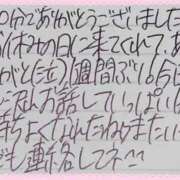 0分でありがとうございました
お休みの日に来てくれて、あ
がと(泣)1週間ぶり!今日
沢お話していっぱい
持ちよくなれたねまたいい
でも連絡してネ〰